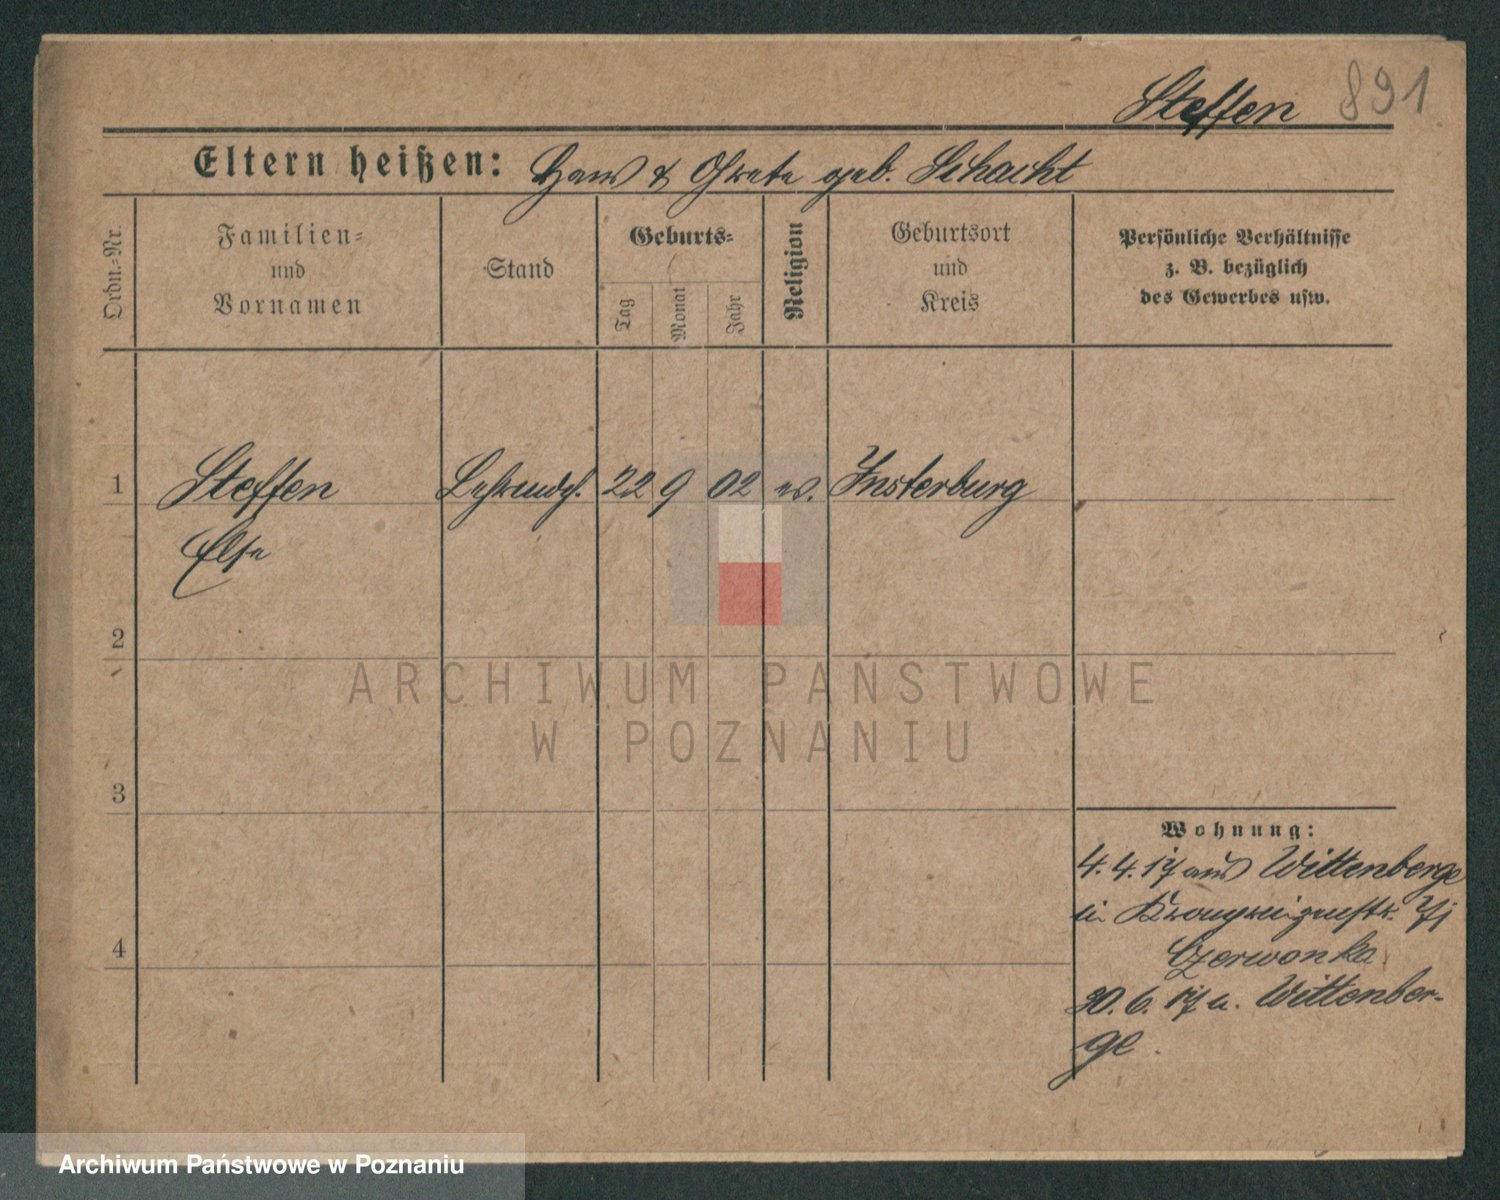 Steffen 891
Eltern heißen: Hans & Grete geb. Schacht
Ordn.=Nr.
Familien=
und
Vornamen
Stand
Geburts=
Tag
Monat
Jahr
Religion
Geburtsort
und
Kreis
Persönliche Verhältnisse
z. B. bezüglich
des Gewerbes usw.
1 Steffen 22 9 02 ev. Insterburg
Else
2
3
4
Wohnung:
4. 4. 17 aus Wittenberge
in Kronprinzenstr.
Czerwonka
30. 6. 17 n. Wittenber-
ge.
ARCHIWUM PAŃSTWOWE
W POZNANIU
Archiwum Państwowe w Poznaniu